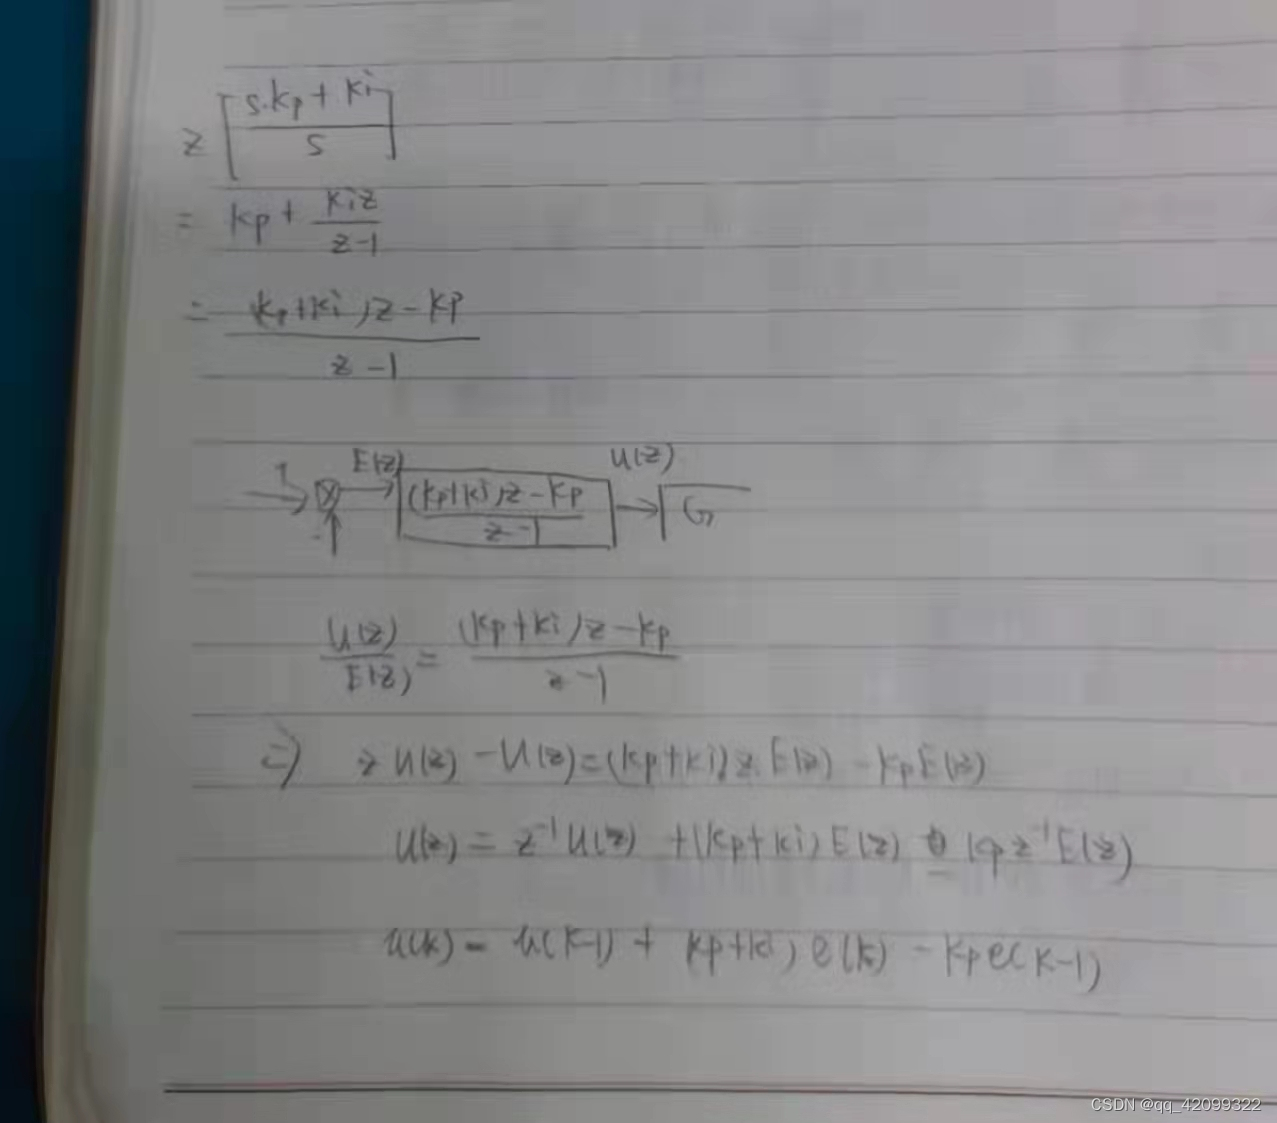 z [ (s·kp + ki) / s ]
= kp + kiz / (z-1)
= (kp+ki)z - kp / (z-1)
E(z) U(z)
(kp+ki)z - kp / (z-1) G
U(z) / E(z) = (kp+ki)z - kp / (z-1)
=) z U(z) - U(z) = (kp+ki) z E(z) - kp E(z)
U(z) = z⁻¹ U(z) + (kp+ki) E(z) - kp z⁻¹ E(z)
u(k) = u(k-1) + kp+ki) e(k) - kp e(k-1)
CSDN @qq_42099322